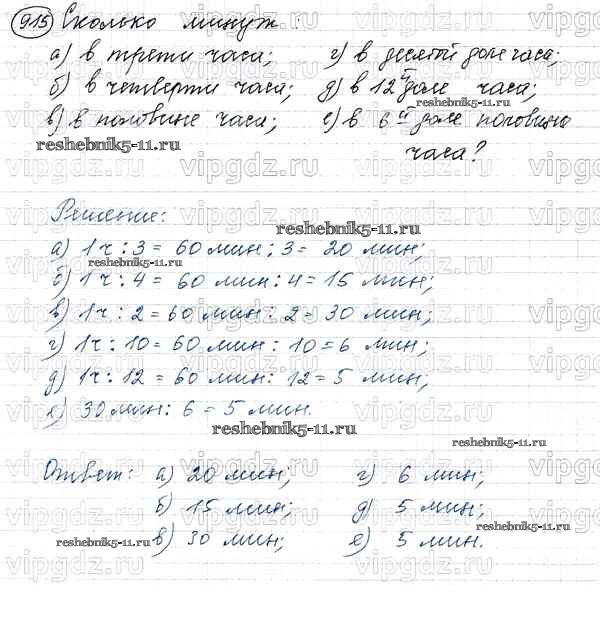 915 Сколько минут:
а) в трети часа; г) в десятой доле часа;
б) в четверти часа; д) в 12й доле часа;
в) в половине часа; е) в 6й доле половины
часа?
reshebnik5-11.ru
reshebnik5-11.ru
Решение:
reshebnik5-11.ru
а) 1ч : 3 = 60 мин : 3 = 20 мин;
reshebnik5-11.ru
б) 1ч : 4 = 60 мин : 4 = 15 мин;
в) 1ч : 2 = 60 мин : 2 = 30 мин;
г) 1ч : 10 = 60 мин : 10 = 6 мин;
д) 1ч : 12 = 60 мин : 12 = 5 мин;
е) 30 мин : 6 = 5 мин.
reshebnik5-11.ru
reshebnik5-11.ru
Ответ: а) 20 мин; г) 6 мин;
б) 15 мин; д) 5 мин;
reshebnik5-11.ru
в) 30 мин; е) 5 мин.
reshebnik5-11.ru
vipgdz.ru